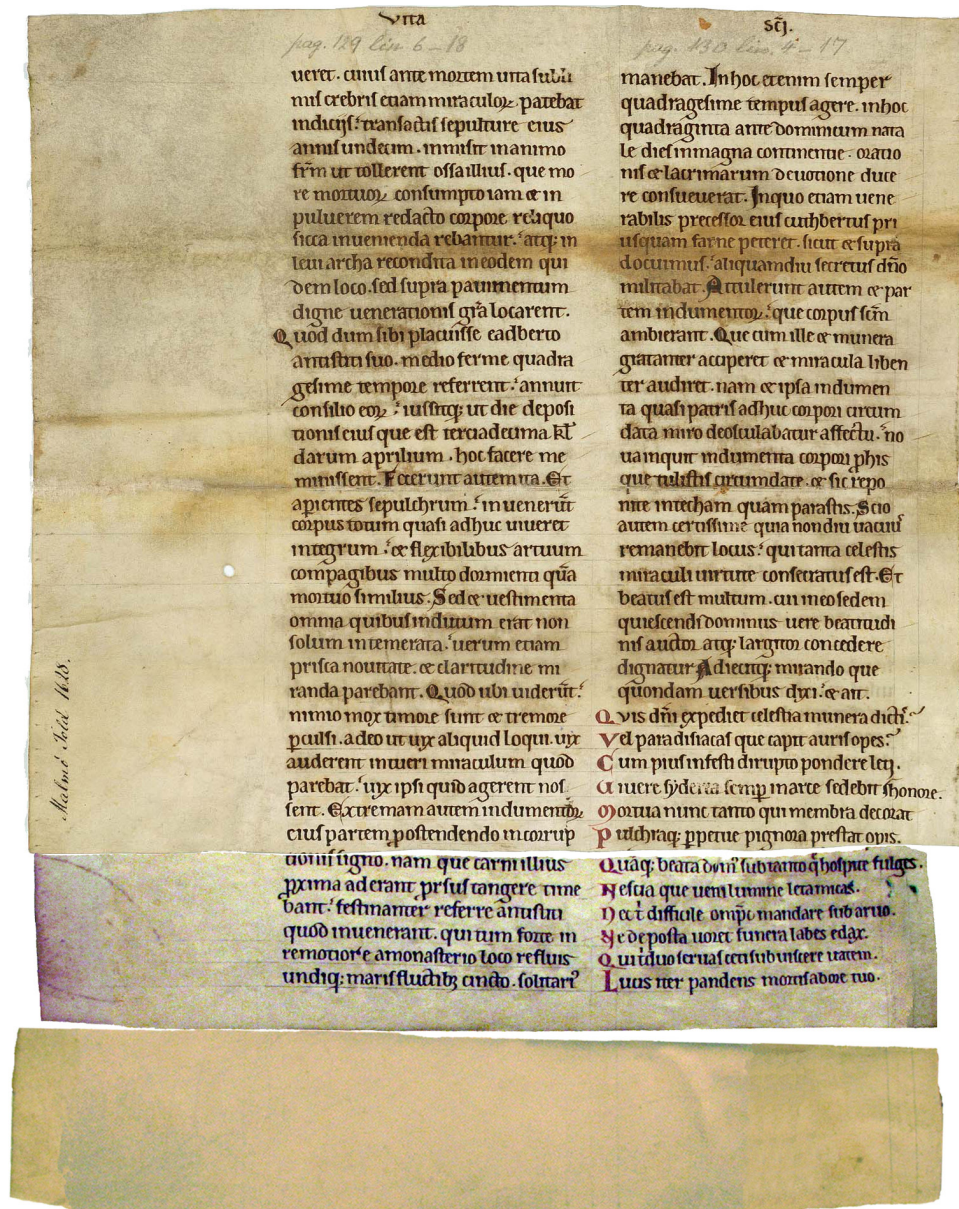 Vita
scī.
pag. 129 lin. 6 – 18
pag. 130 lin. 4 – 17
ueret. cuius ante mortem uita subli
mis crebris etiam miraculoꝝ patebat
indicijs. transactis sepulture eius
annis undecim. inmisit in animo
fr̄m ut tollerent ossa illius. que mo
re mortuoꝝ consumpto iam ⁊ in
puluerem redacto corpore reliquo
sicca inuenienda rebantur. atq; in
leui archa recondita in eodem qui
dem loco. sed supra pauimentum
digne uenerationis gr̄a locarent.
Quod dum sibi placuisse eadberto
antistiti suo. medio ferme quadra
gesime tempore referrent. annuit
consilio eoꝝ. iussitq; ut die deposi
tionis eius que est terciadecima kł
darum aprilium. hoc facere me
minissent. Fecerunt autem ita. Et
aperientes sepulchrum. inuenerūt
corpus totum quasi adhuc uiueret
integrum. ⁊ flexibilibus artuum
compagibus multo dormienti quā
mortuo similius. Sed ⁊ uestimenta
omnia quibus indutum erat non
solum intemerata. uerum etiam
prisca nouitate. ⁊ claritudine mi
randa parebant. Quod ubi uiderūt.
nimio mox timore sunt ⁊ tremore
ꝑculsi. adeo ut uix aliquid loqui. uix
auderent intueri miraculum quod
parebat. uix ipsi quid agerent nos
sent. Extremam autem indumentoꝝ
eius partem ꝓ ostendendo incorrup
tionis signo. nam que carni illius
ꝓxima aderant prsus tangere time
bant. festinanter referre antistiti
quod inuenerant. qui tum forte in
remotiore a monasterio loco refluis
undiq; maris fluctibꝫ cincto. solitari⁹
manebat. In hoc etenim semper
quadragesime tempus agere. in hoc
quadraginta ante dominicum nata
le dies in magna continentie. oratio
nis ⁊ lacrimarum deuotione duce
re consueuerat. In quo etiam uene
rabilis precessor eius cuthbertus pri
usquam farne peteret. sicut ⁊ supra
docuimus. aliquamdiu secretus dn̄o
militabat. Attulerunt autem ⁊ par
tem indumentoꝝ. que corpus scm̄
ambierant. Que cum ille ⁊ munera
gratanter acciperet ⁊ miracula liben
ter audiret. nam ⁊ ipsa indumen
ta quasi patris adhuc corpori circum
data miro deosculabatur affectu. no
ua inquit indumenta corpori ꝓ his
que tulistis circumdate. ⁊ sic repo
nite in techam quam parastis. Scio
autem certissime quia non diu uacuus
remanebit locus. qui tanta celestis
miraculi uirtute consecratus est. Et
beatus est multum. cui in eo sedem
quiescendi dominus uere beatitudi
nis auctor atq; largitor concedere
dignatur. Adiecitq; mirando que
quondam uersibus dixi. ⁊ ait.
Quis dn̄i expediet celestia munera dictis.
Vel paradisiacas que capit auris opes.
Cum pius infesti dirupto pondere leti.
Viuere syderia semꝑ in arce sedebit honore.
Mortua nunc tanto qui membra decorat
Pulchraq; ꝑpetue pignora prestat opis.
Quāq; beata dom⁹ sub tanto q̄ hospite fulges.
Nescia que ueni lumine leta micas.
Nec t̄ difficile omp̄c mandare sub aruo.
Ne deposta uoret funera labes edax.
Qui tduo seruas ceti sub uiscere uatem.
Lucis iter pandens mortis ab ore tuo.
Malmö Feld 1628.